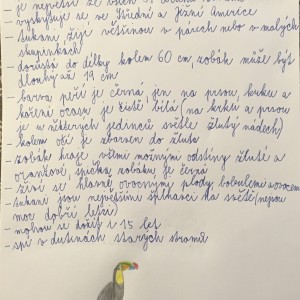 je největší ze všech
- vyskytuje se ve Střední a Jižní Americe
- tukani žijí většinou v párech nebo v malých
skupinkách
- dorůstá do délky kolem 60 cm, zobák může být
dlouhý až 19 cm
- barva peří je černá, jen na prsou, krku a
kořeni ocasu je čistě bílá (na krku a prsou
je u některých jedinců světle žlutý nádech)
- kolem očí je zbarven do žluta
- zobák hraje všemi možnými odstíny žluté a
oranžové, špička zobáku je černá
- živí se hlavně ovocnými plody, bobulemi
- tukani jsou největšími šplhavci na světě (nejsou
moc dobří letci)
- mohou se dožít i 15 let
- spí v dutinách starých stromů